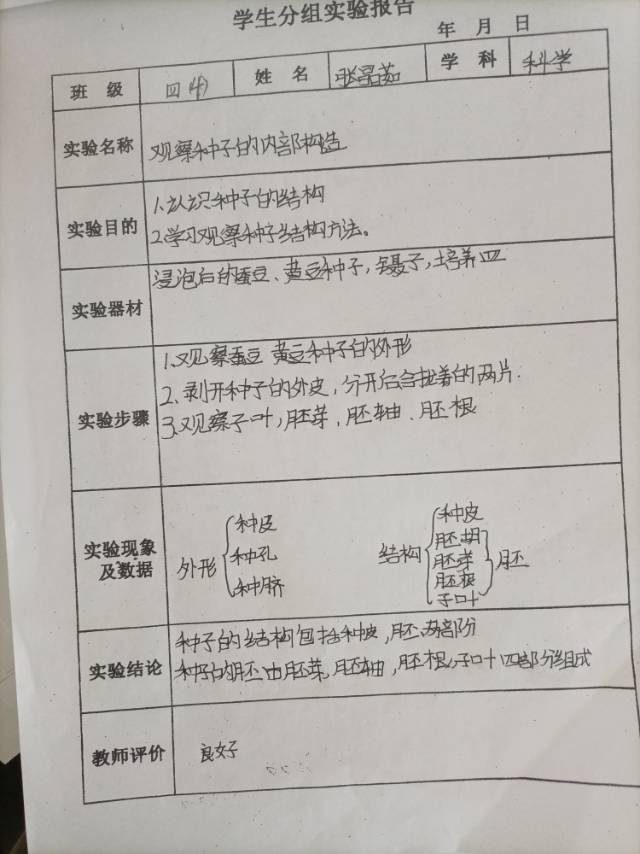 学生分组实验报告
年 月 日
班 级 四(4) 姓 名 张晶茹 学 科 科学
实验名称 观察种子的内部构造
实验目的 1.认识种子的结构
2.学习观察种子结构方法。
实验器材 浸泡后的蚕豆、黄豆种子,镊子,培养皿
实验步骤 1.观察蚕豆 黄豆种子的外形
2、剥开种子的外皮,分开合拢着的两片.
3.观察子叶,胚芽,胚轴、胚根
实验现象及数据 外形 种皮 种孔 种脐
结构 种皮 胚轴 胚芽 胚根 子叶 胚
实验结论 种子的结构包括种皮,胚两部分
种子的胚由胚芽,胚轴,胚根,子叶四部分组成
教师评价 良好